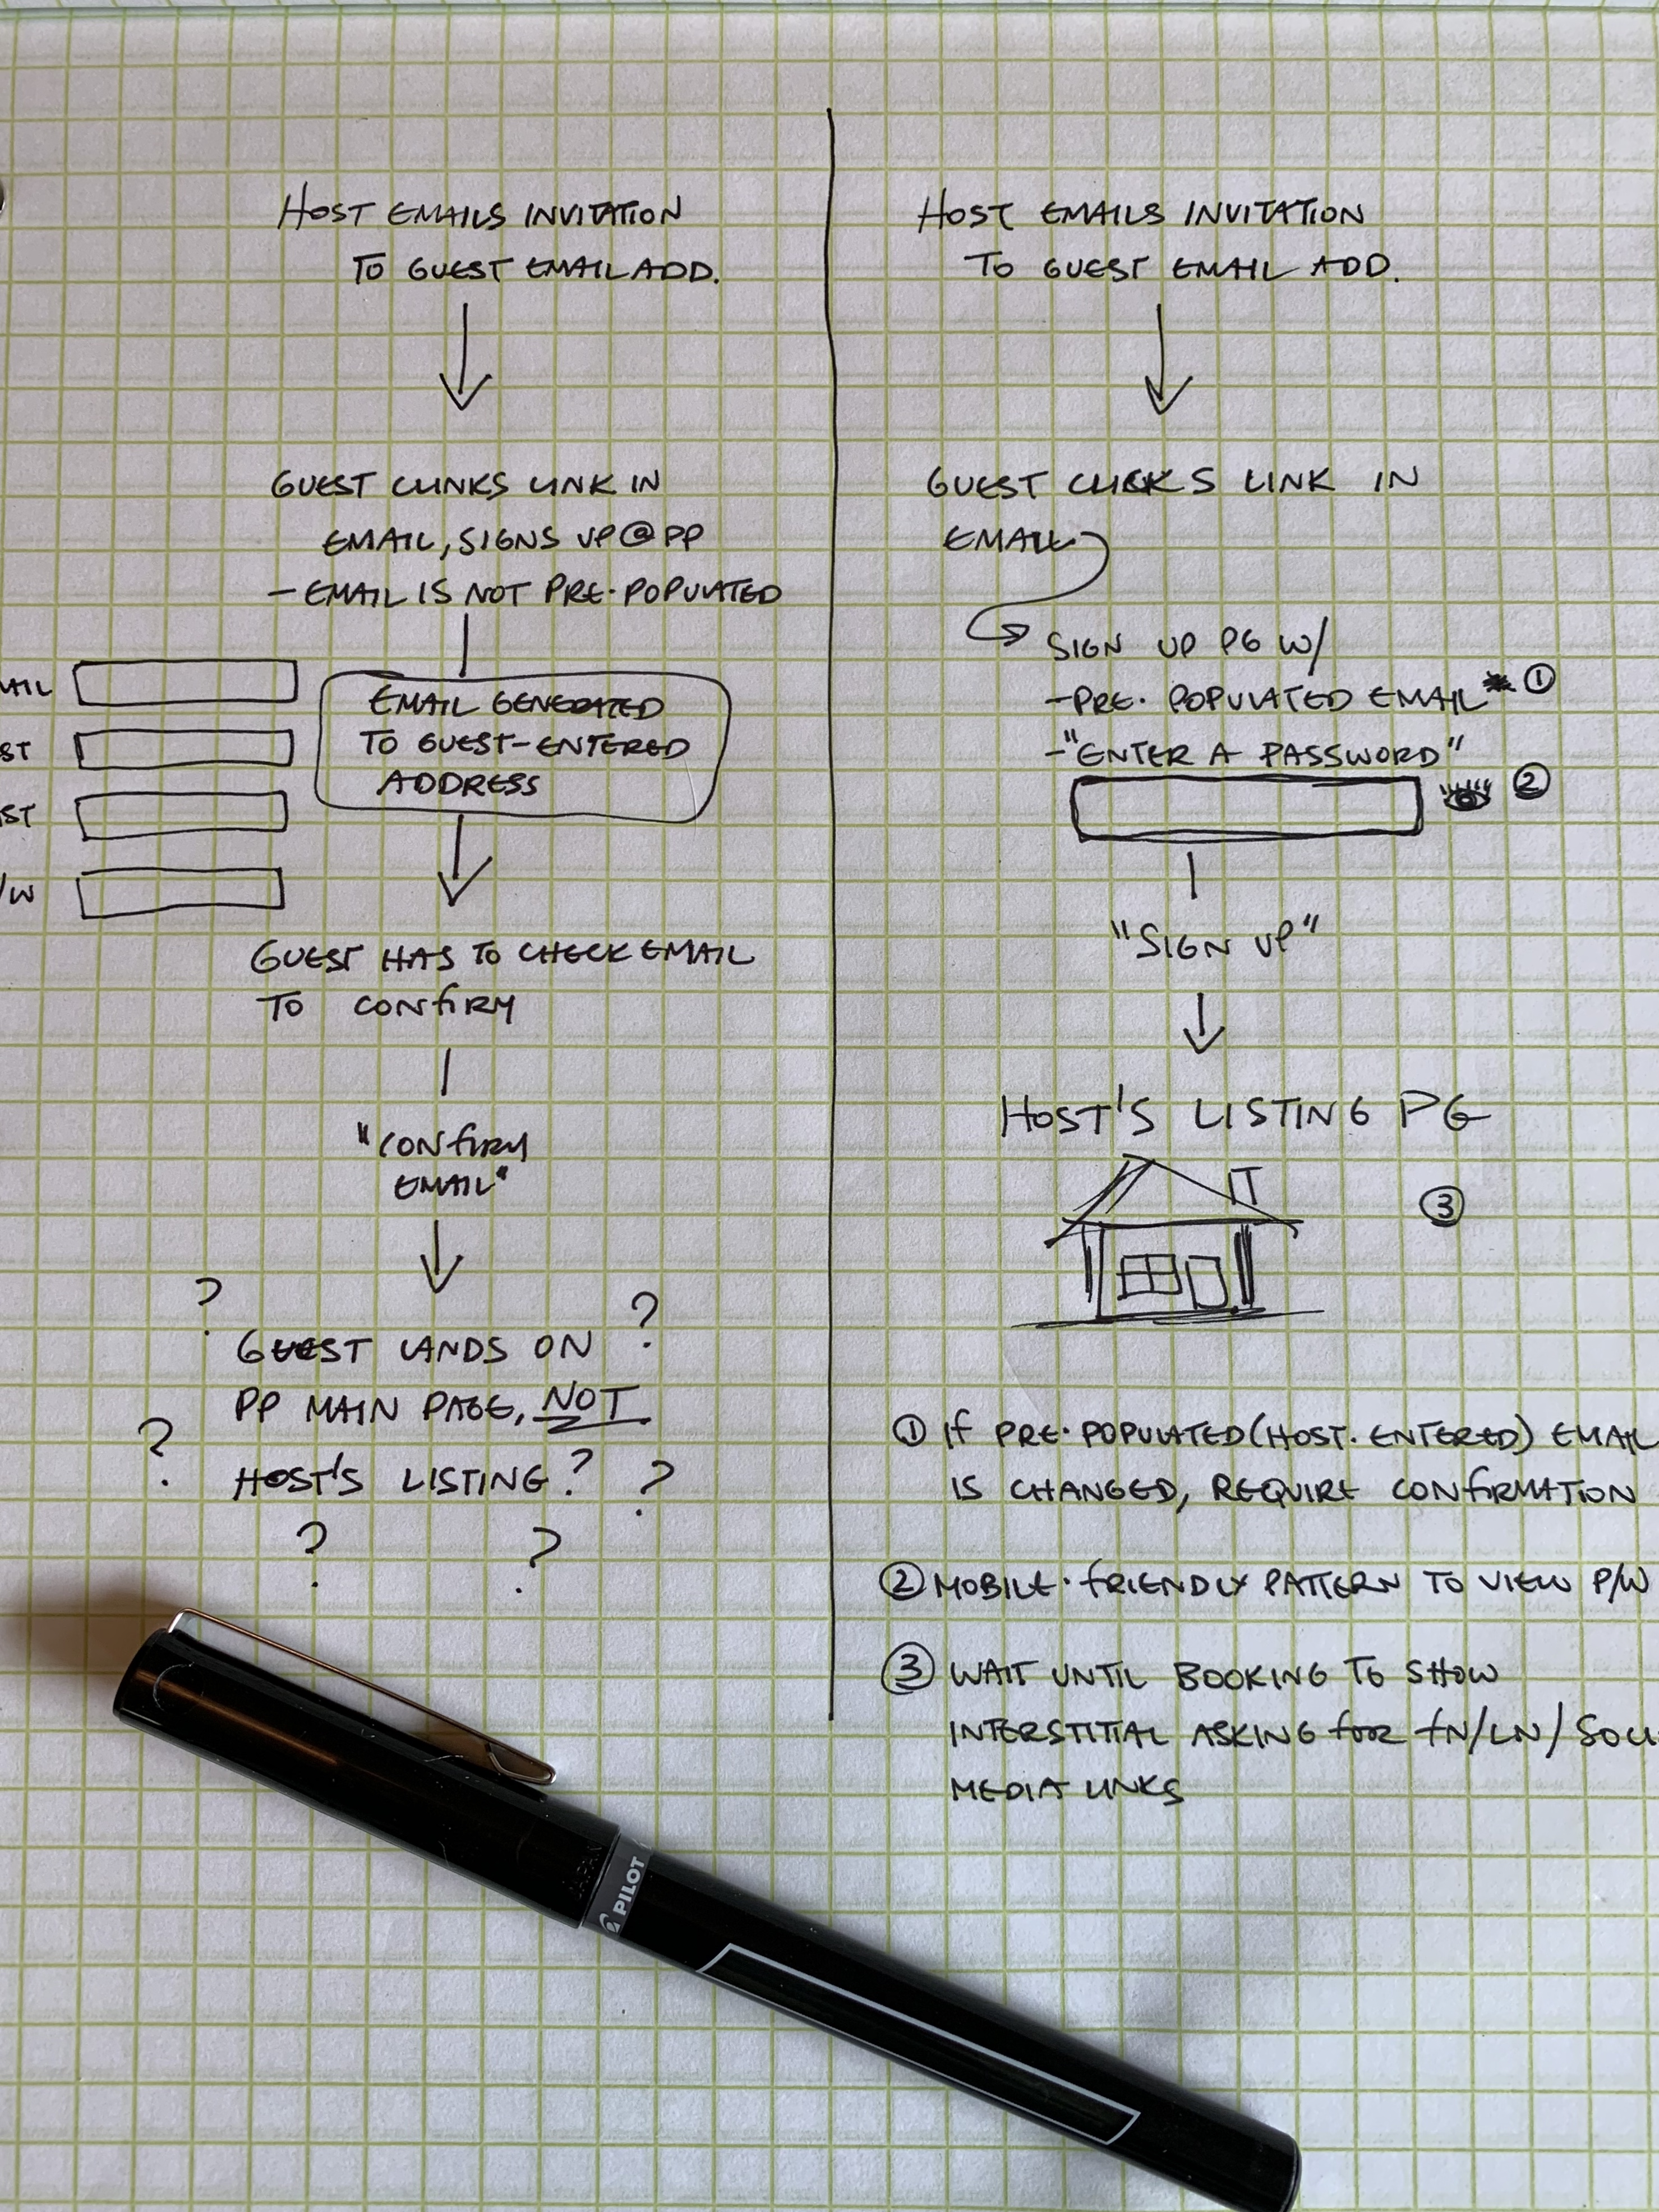 HOST EMAILS INVITATION
TO GUEST EMAIL ADD.
GUEST CLINKS LINK IN
EMAIL, SIGNS UP @ PP
- EMAIL IS NOT PRE-POPULATED
AIL
ST
ST
/W
EMAIL GENERATED
TO GUEST-ENTERED
ADDRESS
GUEST HAS TO CHECK EMAIL
TO CONFIRM
"CONFIRM
EMAIL"
?
?
GUEST LANDS ON
PP MAIN PAGE, NOT
?
HOST'S LISTING?
?
?
?
HOST EMAILS INVITATION
TO GUEST EMAIL ADD.
GUEST CLICKS LINK IN
EMAIL
SIGN UP PG W/
- PRE-POPULATED EMAIL * ①
- "ENTER A PASSWORD"
②
"SIGN UP"
HOST'S LISTING PG
③
① IF PRE-POPULATED (HOST-ENTERED) EMAIL
IS CHANGED, REQUIRE CONFIRMATION
② MOBILE-FRIENDLY PATTERN TO VIEW P/W
③ WAIT UNTIL BOOKING TO SHOW
INTERSTITIAL ASKING FOR FN/LN/SOCI
MEDIA LINKS
JAPAN
PILOT